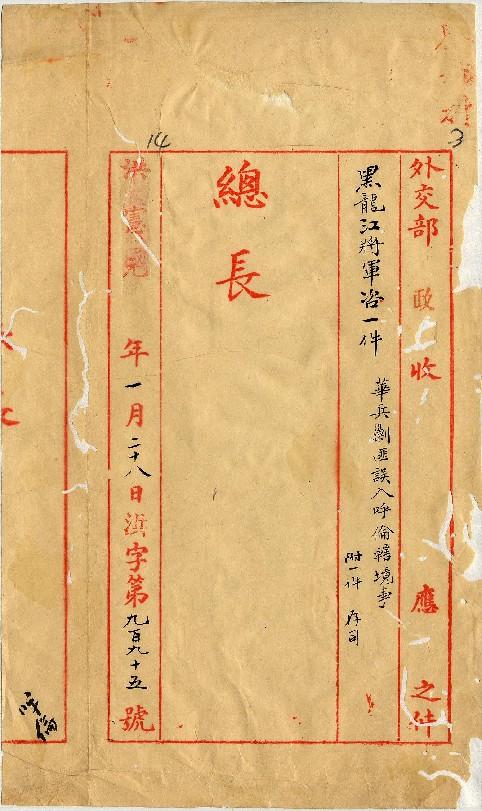 3
外交部 政 收 應 之件
黑龍江將軍咨一件 華兵剿匪誤入呼倫轄境事
附一件 存司
總長
14
洪憲元年一月二十八日 字第九百九十五號
呼倫